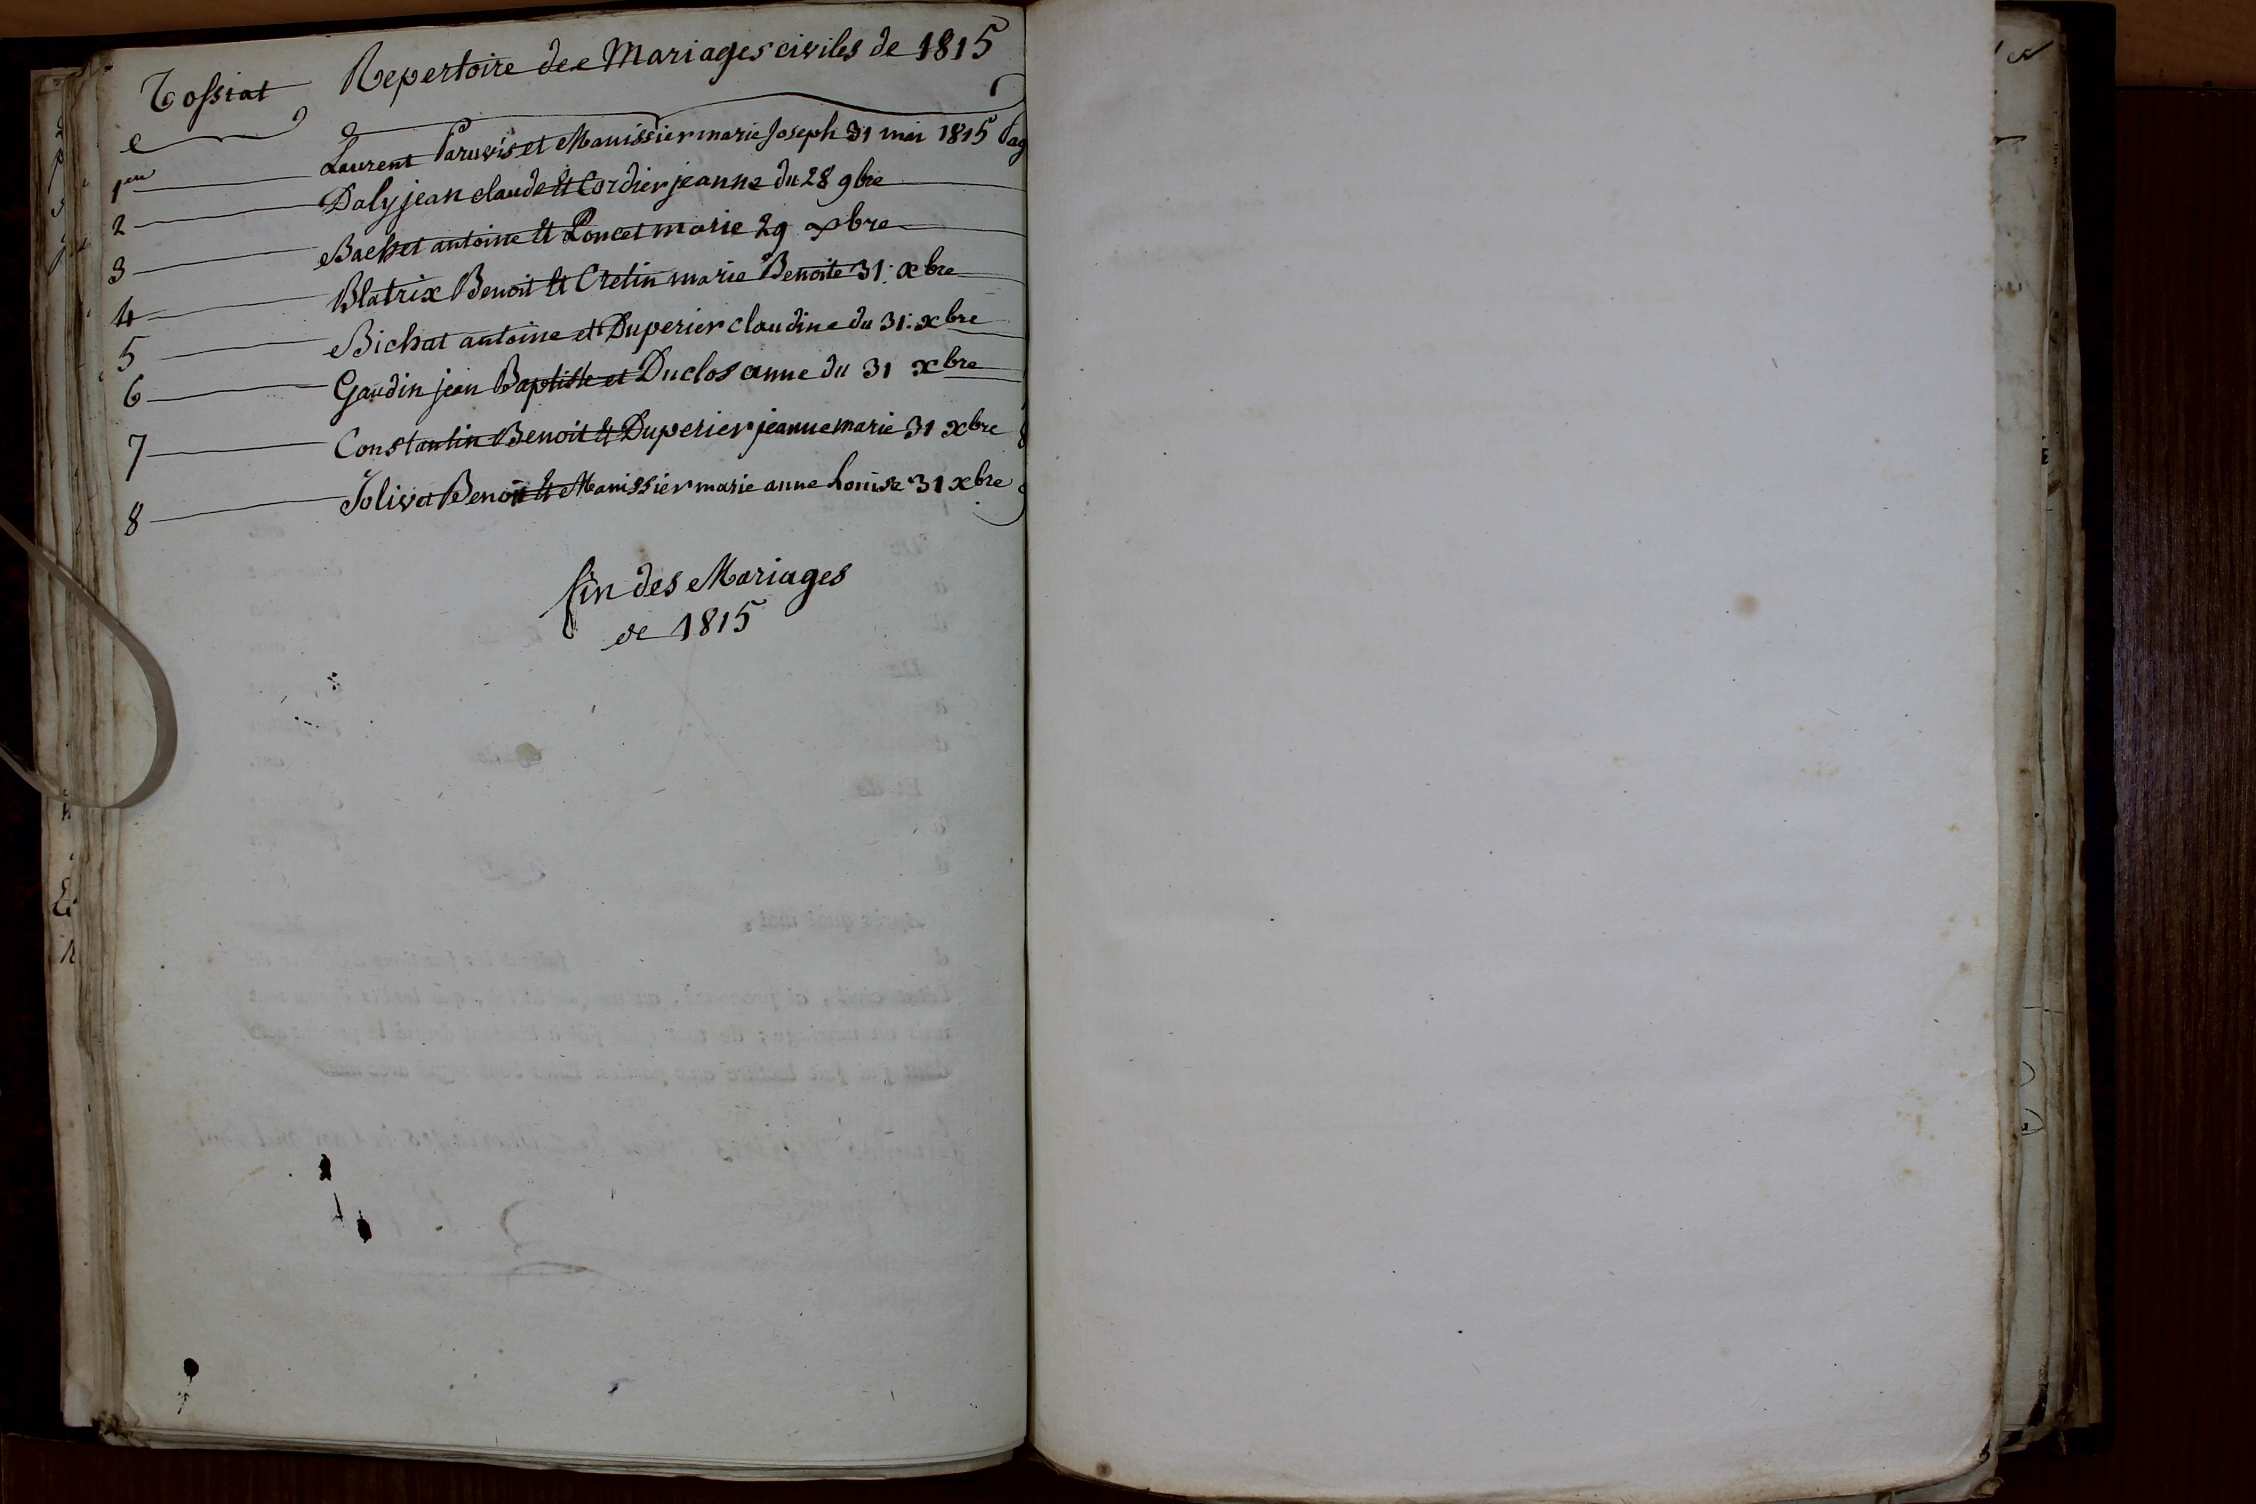 Tossiat Repertoire des Mariages civiles de 1815
1er Laurent Paruvis et Manissier marie Joseph 31 mai 1815 Pag
2 Daly jean claude et Cordier jeanne du 28 9bre
3 Bachet antoine et Poncet marie 29 xbre
4 Blatrix Benoit et Cretin marie Benoite 31: xbre
5 Bichat antoine et Duperier claudine du 31: xbre
6 Gaudin jean Baptiste et Duclos anne du 31 xbre
7 Constantin Benoit et Duperier jeanne marie 31 xbre
8 Jolivet Benoit et Manissier marie anne Louise 31 xbre
fin des Mariages
de 1815